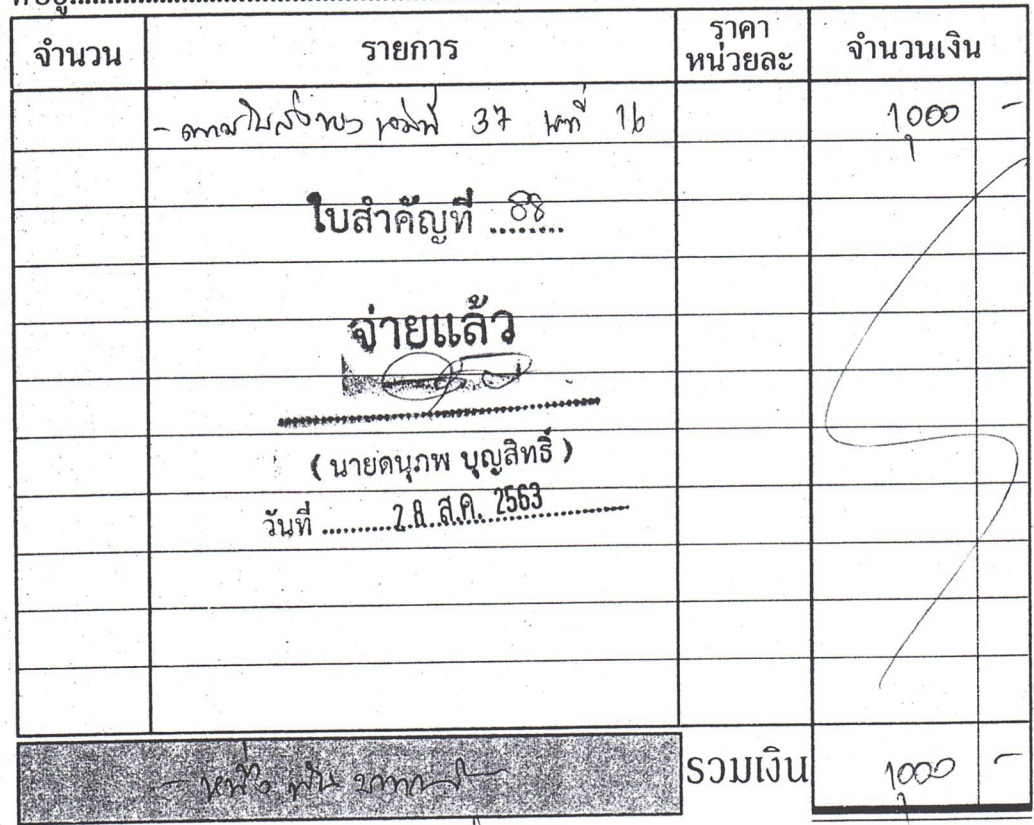 ที่อยู่
จำนวน รายการ ราคาหน่วยละ จำนวนเงิน
- ตามใบส่งของ เล่มที่ 37 เลขที่ 16 1,000 -
ใบสำคัญที่ 88
จ่ายแล้ว
( นายดนุภพ บุญสิทธิ์ )
วันที่ 28 ส.ค. 2563
- หนึ่งพันบาทถ้วน - รวมเงิน 1,000 -